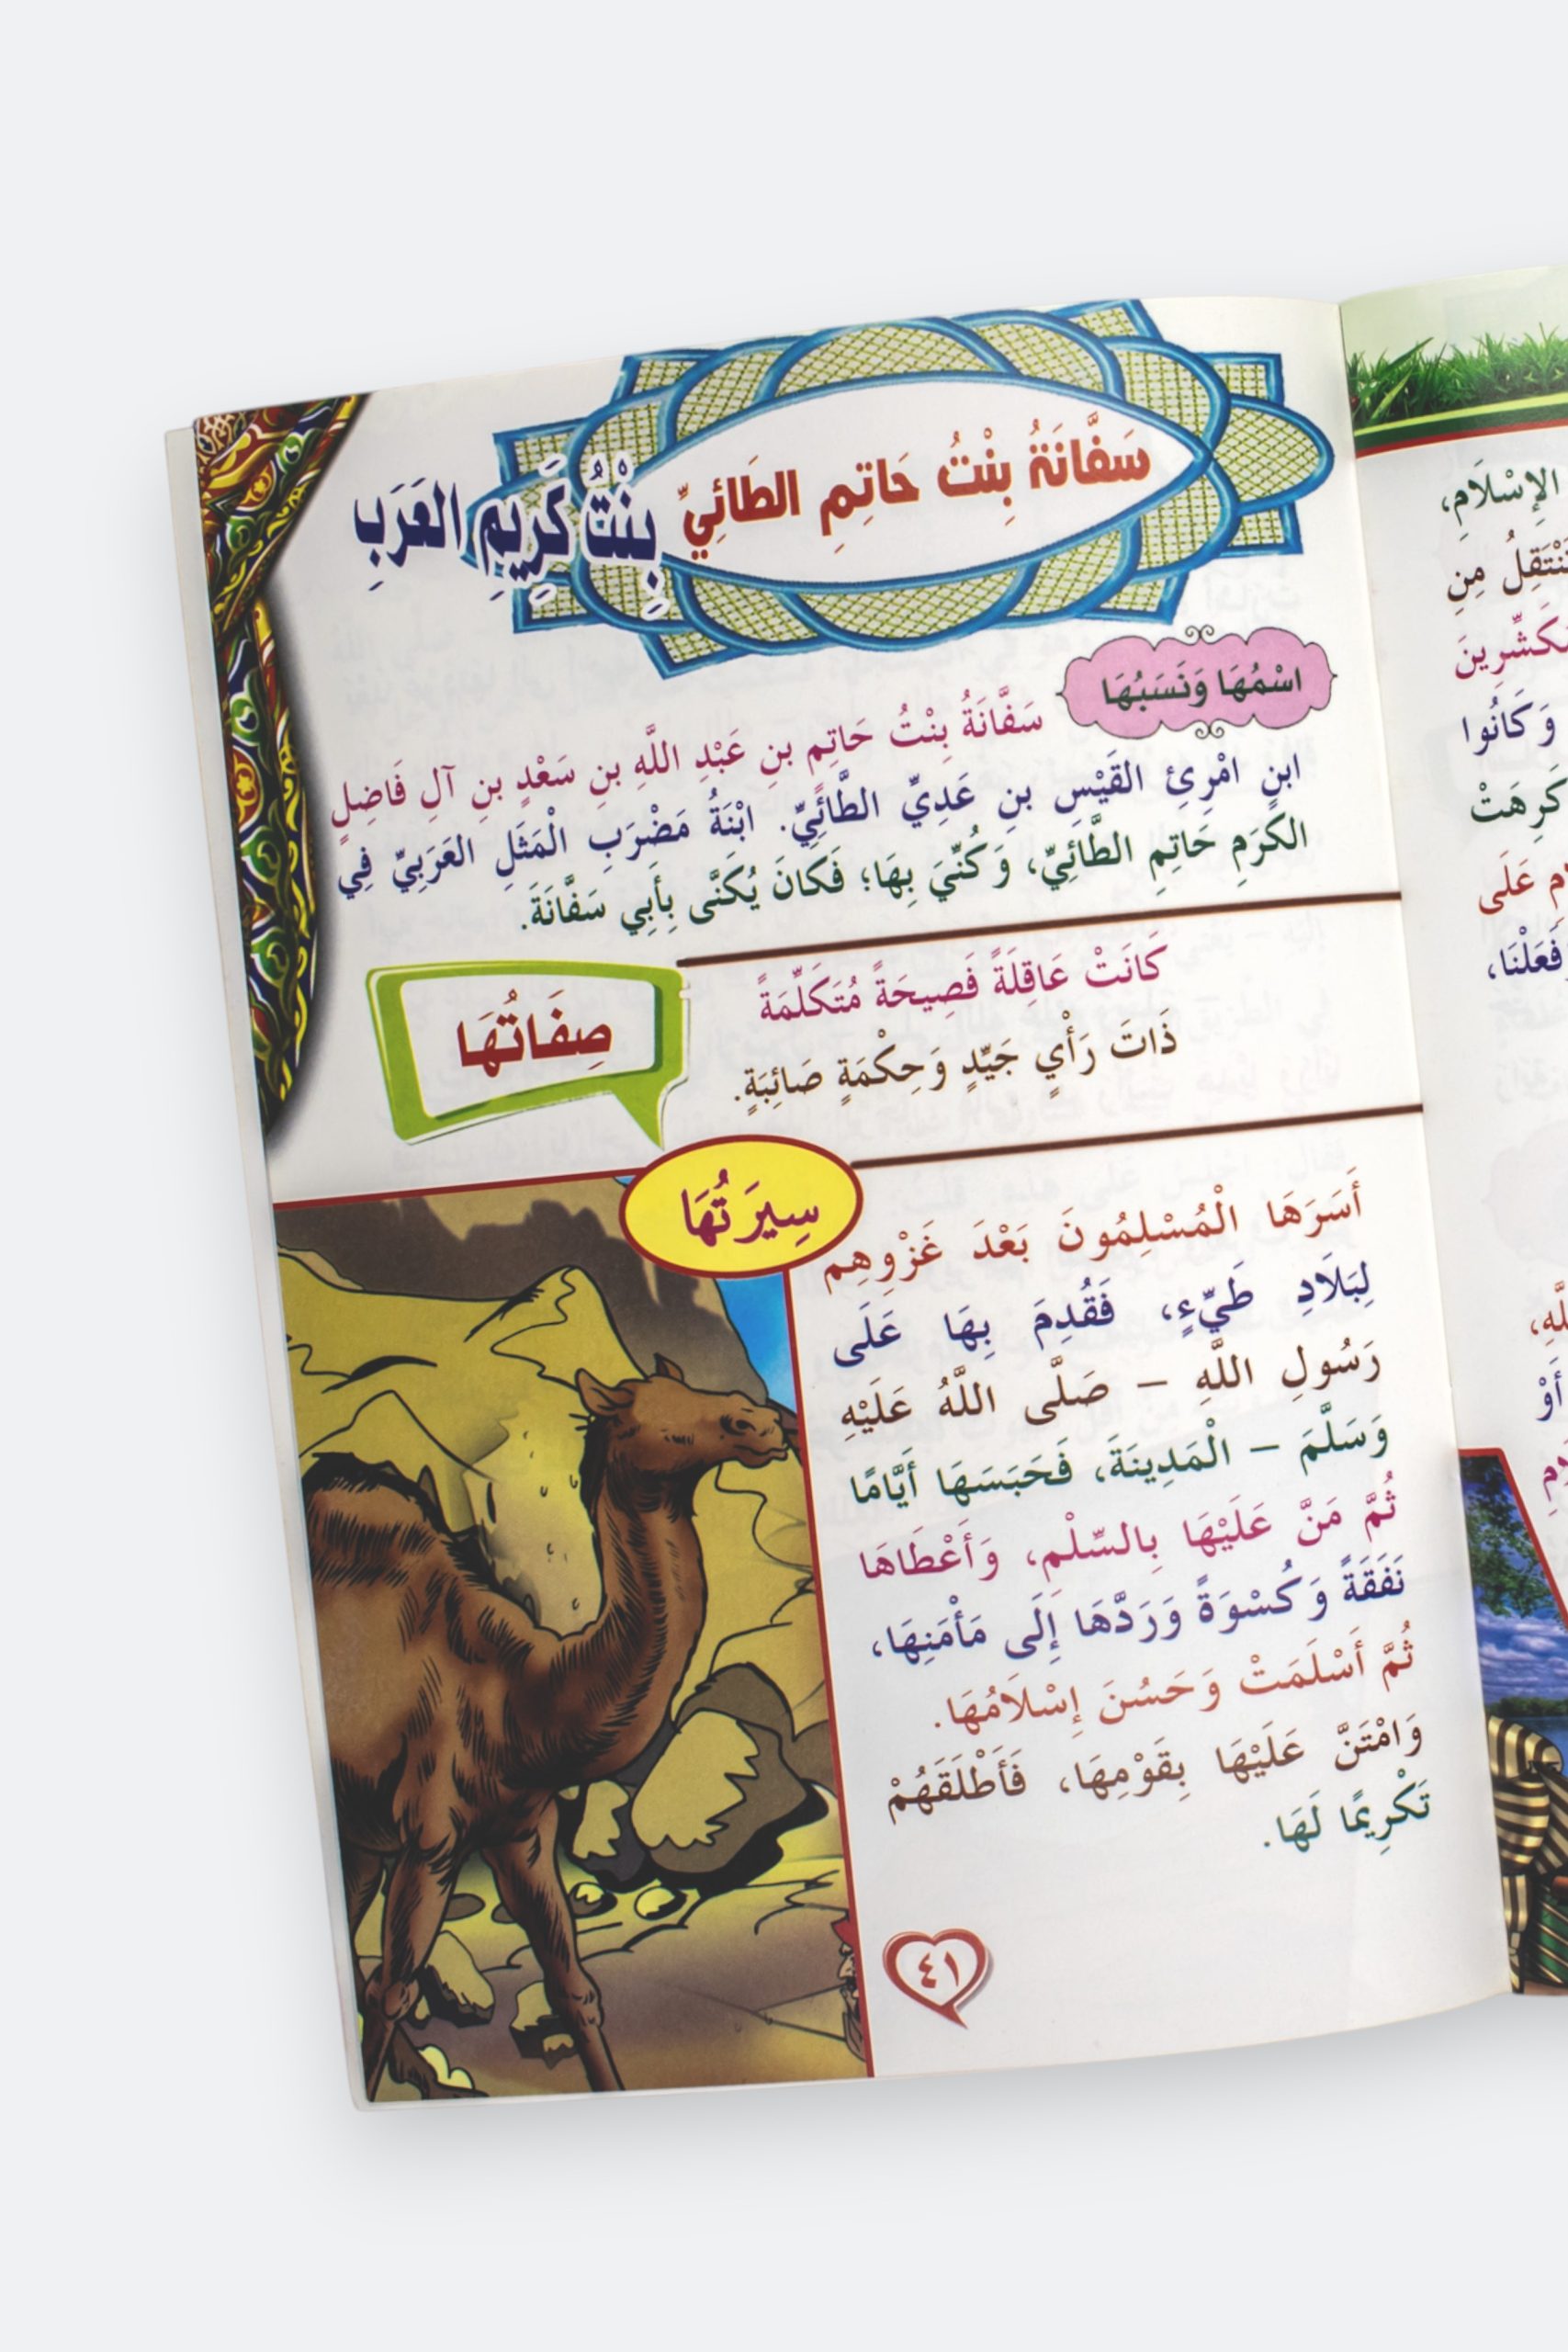 سَفَّانَةُ بِنْتُ حَاتِمِ الطَائِيِّ
بِنْتُ كَرِيمِ العَرَبِ
اسْمُهَا وَنَسَبُهَا
سَفَّانَةُ بِنْتُ حَاتِمِ بنِ عَبْدِ اللَّهِ بنِ سَعْدِ بنِ آلِ فَاضِلِ
ابنِ امْرِئِ القَيْسِ بنِ عَدِيِّ الطَّائِيِّ. ابْنَةُ مَضْرَبِ الْمَثَلِ العَرَبِيِّ فِي
الكَرَمِ حَاتِمِ الطَّائِيِّ، وَكُنِّيَ بِهَا؛ فَكَانَ يُكَنَّى بِأَبِي سَفَّانَةَ.
صِفَاتُهَا
كَانَتْ عَاقِلَةً فَصِيحَةً مُتَكَلِّمَةً
ذَاتَ رَأْيٍ جَيِّدٍ وَحِكْمَةٍ صَائِبَةٍ.
سِيرَتُهَا
أَسَرَهَا الْمُسْلِمُونَ بَعْدَ غَزْوِهِم
لِبَلَادِ طَيِّءٍ، فَقُدِمَ بِهَا عَلَى
رَسُولِ اللَّهِ – صَلَّى اللَّهُ عَلَيْهِ
وَسَلَّمَ – الْمَدِينَةَ، فَحَبَسَهَا أَيَّامًا
ثُمَّ مَنَّ عَلَيْهَا بِالسِّلْمِ، وَأَعْطَاهَا
نَفَقَةً وَكُسْوَةً وَرَدَّهَا إِلَى مَأْمَنِهَا،
ثُمَّ أَسْلَمَتْ وَحَسُنَ إِسْلَامُهَا.
وَامْتَنَّ عَلَيْهَا بِقَوْمِهَا، فَأَطْلَقَهُمْ
تَكْرِيمًا لَهَا.
٤١
الإِسْلَامِ،
مِنِ
وَكَانُوا
كَرِهَتْ
عَلَى
فَعَلْنَا،
أَوْ